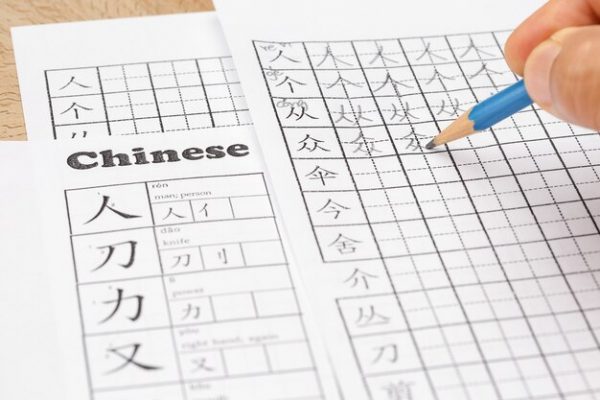 人
个
Chinese
人
rén
man; person
人 亻
刀
dāo
knife
刀 刂
力
power
力
又
yòu
right hand; again
又
人
个
从 从 从 从
众 众 众
伞
今
舍
介
丛
刀